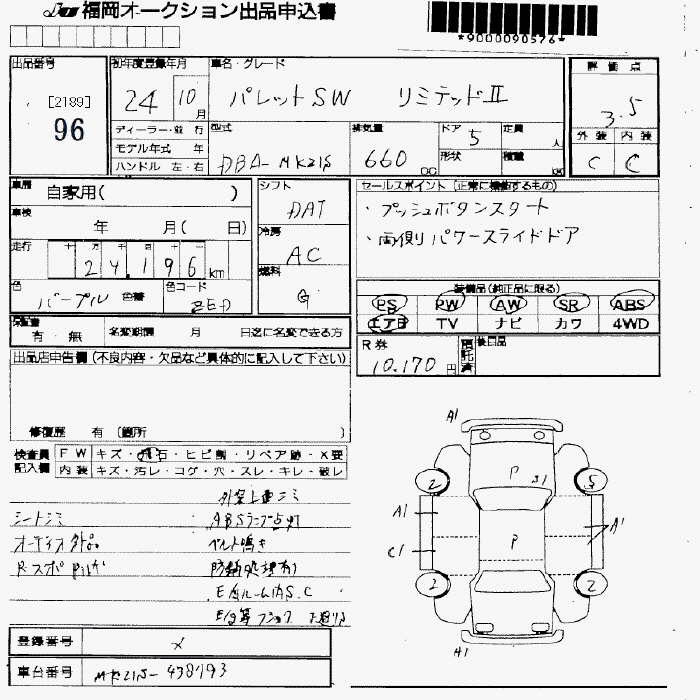 福岡オークション出品申込書
*9000090576*
出品番号
[2189]
96
初年度登録年月
24 10月
車名・グレード
パレットSW リミテッドⅡ
評価点
3.5
外装 内装
C C
ディーラー・並行
モデル年式 年
ハンドル 左・右
型式
DBA-MK21S
排気量
660 CC
ドア 5
形状
定員 人
積載 KG
車歴 自家用( )
車検 年 月( 日)
走行 十 万 千 百 十
24,196 km
色 パープル 色替
色コード ZED
シフト
DAT
冷房
AC
燃料
G
セールスポイント(正常に機能するもの)
・プッシュボタンスタート
・両側パワースライドドア
装備品(純正品に限る)
PS PW AW SR ABS
エアB TV ナビ カワ 4WD
保証書 有・無
名変期限 月 日迄に名変できる方
R券
10,170円
預託済
後日品
出品店申告欄(不良内容・欠品など具体的に記入して下さい)
修復歴 有(箇所 )
検査員記入欄
FW キズ・飛石・ヒビ割・リペア跡・X要
内装 キズ・汚レ・コゲ・穴・スレ・キレ・破レ
シートシミ
ABSランプ点灯
オーディオ外品
ベルト鳴き
防錆処理有り
登録番号
車台番号 MK21S-438793
A1
P
S1
2
S
A1
A1
C1
P
2
2
A1